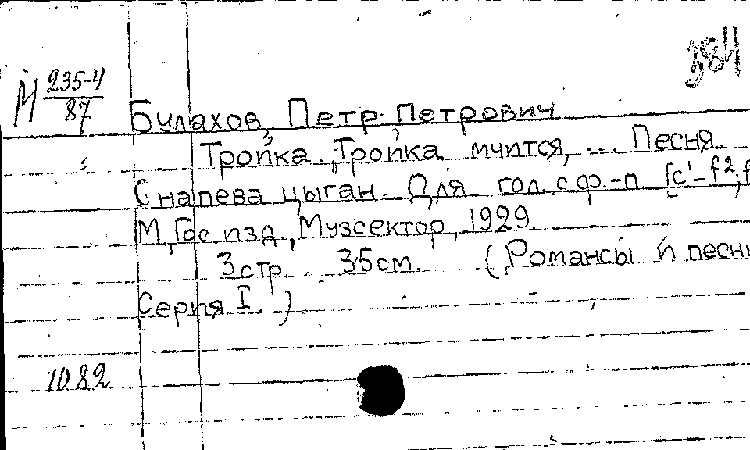 384
М 235-4
87
Булахов, Петр Петрович
Тройка, Тройка мчится, ... Песня
С напева цыган. Для гол. с ф.-п. [c'-f²,
М, Гос изд., Музсектор, 1929
3 стр. 35 см. (Романсы и песни
Серия I.)
1082